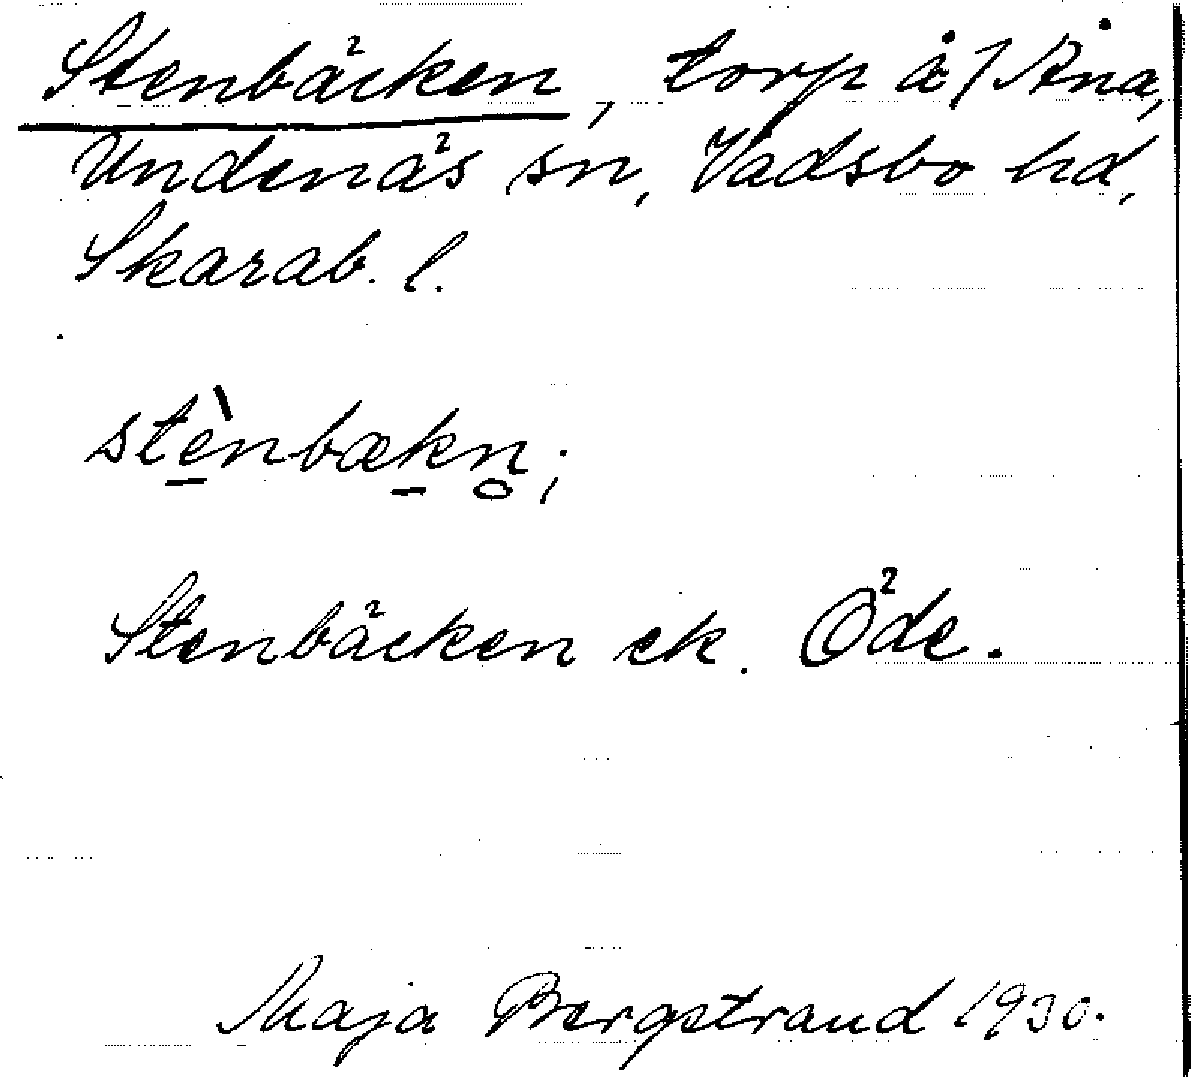 Stenbäcken, torp å/Åna,
Undenäs sn, Vadsbo hd,
Skarab. l.
stènbækn̥;
Stenbäcken ek. Öde.
Maja Bergstrand 1930.